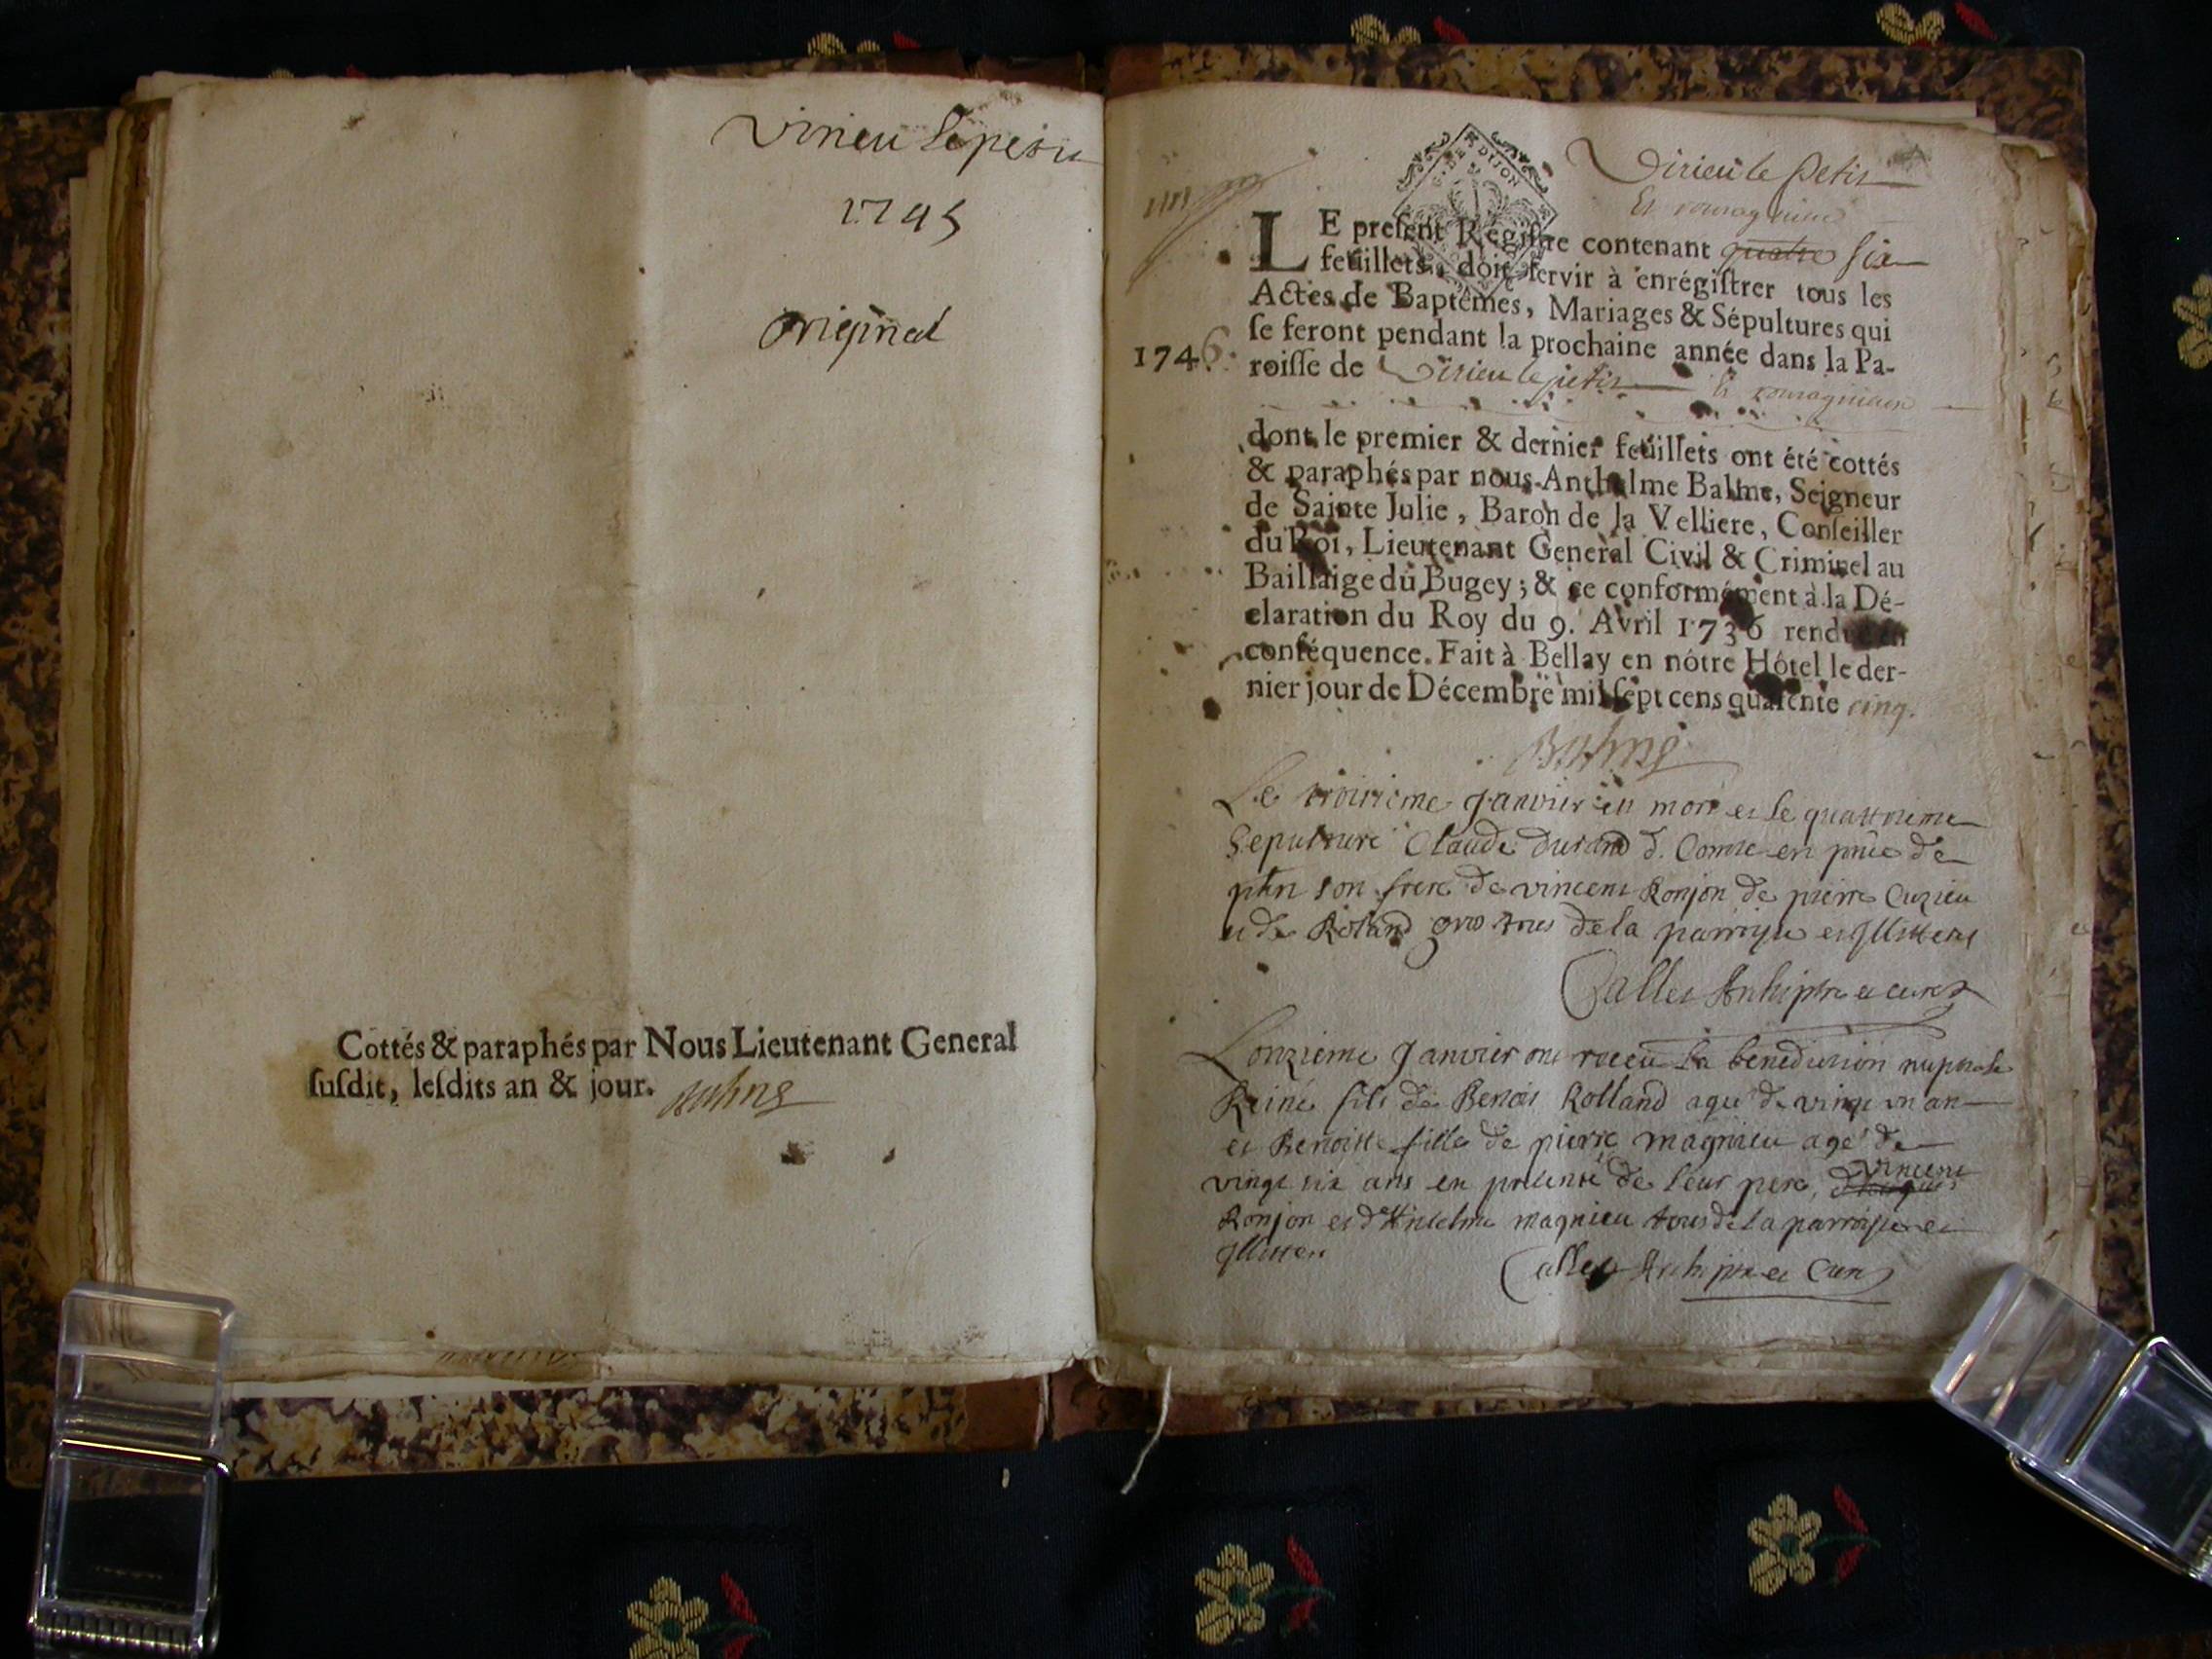 Virieu le petit
1745
original
Cottés & paraphés par Nous Lieutenant General
ſuſdit, leſdits an & jour. Balme
G. DE DIJON
Virieu le Petit
Et
LE preſent Régiſtre contenant quatre ſix
feüillets, doit ſervir à enrégiſtrer tous les
Actes de Baptêmes, Mariages & Sépultures qui
ſe feront pendant la prochaine année dans la Pa-
1746. roiſſe de Virieu le petit
dont le premier & dernier feüillets ont été cottés
& paraphés par nous Anthelme Balme, Seigneur
de Sainte Julie, Baron de la Velliere, Conſeiller
du Roi, Lieutenant General Civil & Criminel au
Baillaige du Bugey; & ce conformément à la Dé-
claration du Roy du 9. Avril 1736 rendue en
conſéquence. Fait à Bellay en nôtre Hôtel le der-
nier jour de Décembre mil ſept cens quarente cinq.
Balme
Le troisieme Janvier est mort et le quattrieme
Sepulturé Claude Durand d. Comte en pñce de
son frere de vincent Ronjon de pierre Cuzieu
et de Roland tous de la parroisse et Illitteres
Callet Archiptre et curé
Lonzieme Janvier ont receu la benediction nuptiale
Reiné fils de Benoit Rolland agé de vingt un an
et Benoitte fille de pierre magnieu agé de
vingt six ans en presence de leur pere, vincent
Ronjon et d'Antelme magnieu tous de la parroisse et
Illitteres
Callet Archiptre et Curé